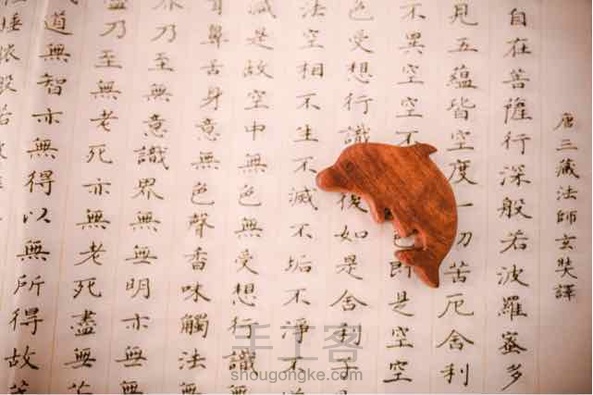 唐三藏法師玄奘譯
自在菩薩行深般若波羅蜜多
見五蘊皆空度一切苦厄舍利
不異空空不色即是空空
色受想行識復如是舍利子
法空相不生不滅不垢不淨不
滅是故空中無色無受想行識
鼻舌身意無色聲香味觸法
乃至無意識界無無明亦無
盡乃至無老死亦無老死盡無
道無智亦無得以無所得故
依般若
手工客
shougongke.com